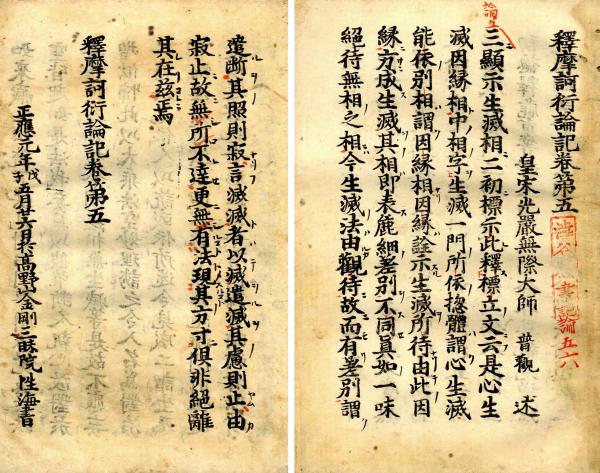 釋摩訶衍論記卷第五
皇宋光嚴無際大師 普觀 述
三顯示生滅相二初標示此釋標立文云是心生
滅因縁相中相字生滅一門所依揔體謂心生滅
能依別相謂因縁相因縁詮示生滅所待由此因
縁方成生滅其相即表麁細差別不同真如一味
絕待無相之相今生滅法由觀待故而有差別謂
遣斷其照則寂言滅滅者以滅遣滅其慮則止由
寂止故無所不達更無有法現其方寸但非絕離
其在茲焉
釋摩訶衍論記卷第五
正應元年戊子五月廿六日於高野山金剛三昧院性海書